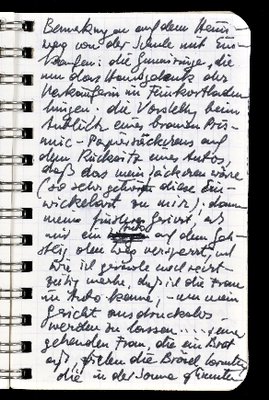 Bemerkungen auf dem Heim-
weg von der Schule mit Ein-
käufen: die Gummiringe, die
um das Handgelenk der
Verkäuferin im Feinkostladen
hingen. die Vorstellung beim
Anblick eines braunen
Papiersäckchens auf
dem Rücksitz eines Autos,
daß das mein Säckchen wäre
(so sehr gehört diese Ein-
zu mir); dann
mein, als
mir ein Auto auf dem Geh-
steig den Weg versperrt, und
wie ich gerade noch recht-
zeitig merke, daß ich die Frau
im Auto kenne, um mein
Gesicht ausdruckslos
werden zu lassen.... jene
gehenden Frau, die ein Brot
aß, fielen die Brösel herunter,
die in der Sonne glänzten